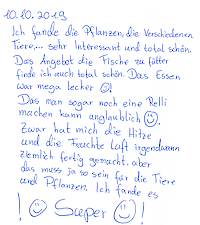 10.10.2019
Ich fande die Pflanzen, die Verschiedenen
Tiere,... sehr Interessant und total schön.
Das Angebot die Fische zu fütter
finde ich auch total schön. Das Essen
war mega lecker !
Das man sogar noch eine Relli
machen kann unglaublich .
Zwar hat mich die Hitze
und die Feuchte Luft irgendwann
ziemlich fertig gemacht, aber
das muss ja so sein für die Tiere
und Pflanzen. Ich fande es
! Super !